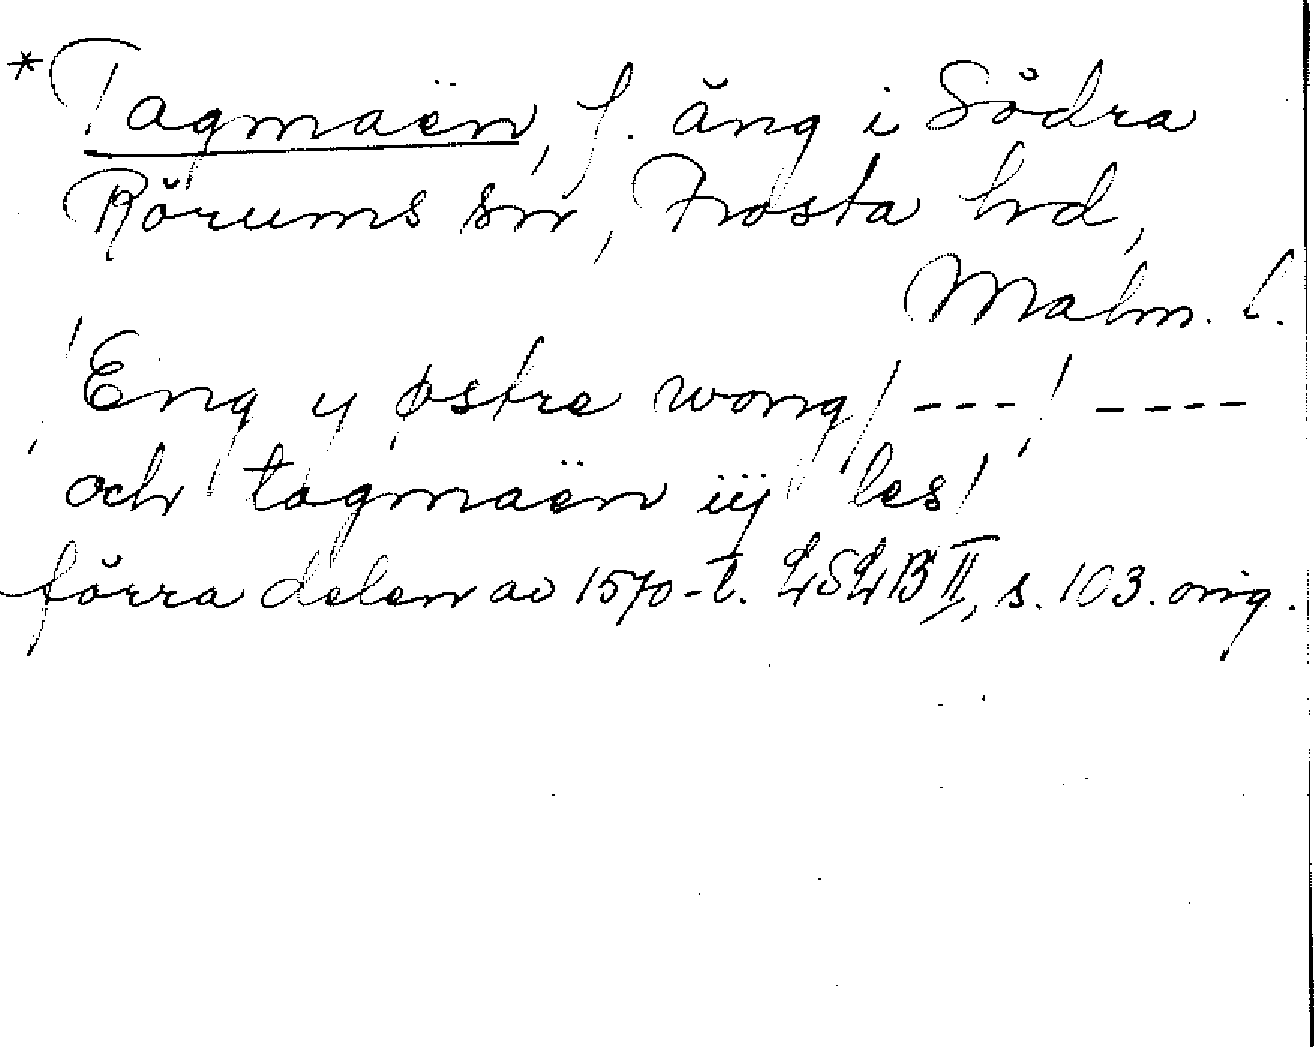 *Tagmaën, f. äng i Södra
Rörums sn, Frosta hd,
Malm. l.
/Eng y østre wong/ ---/ ----
och tagmaën iij les/
förra delen av 1570-t. LSLB II, s. 103. orig.